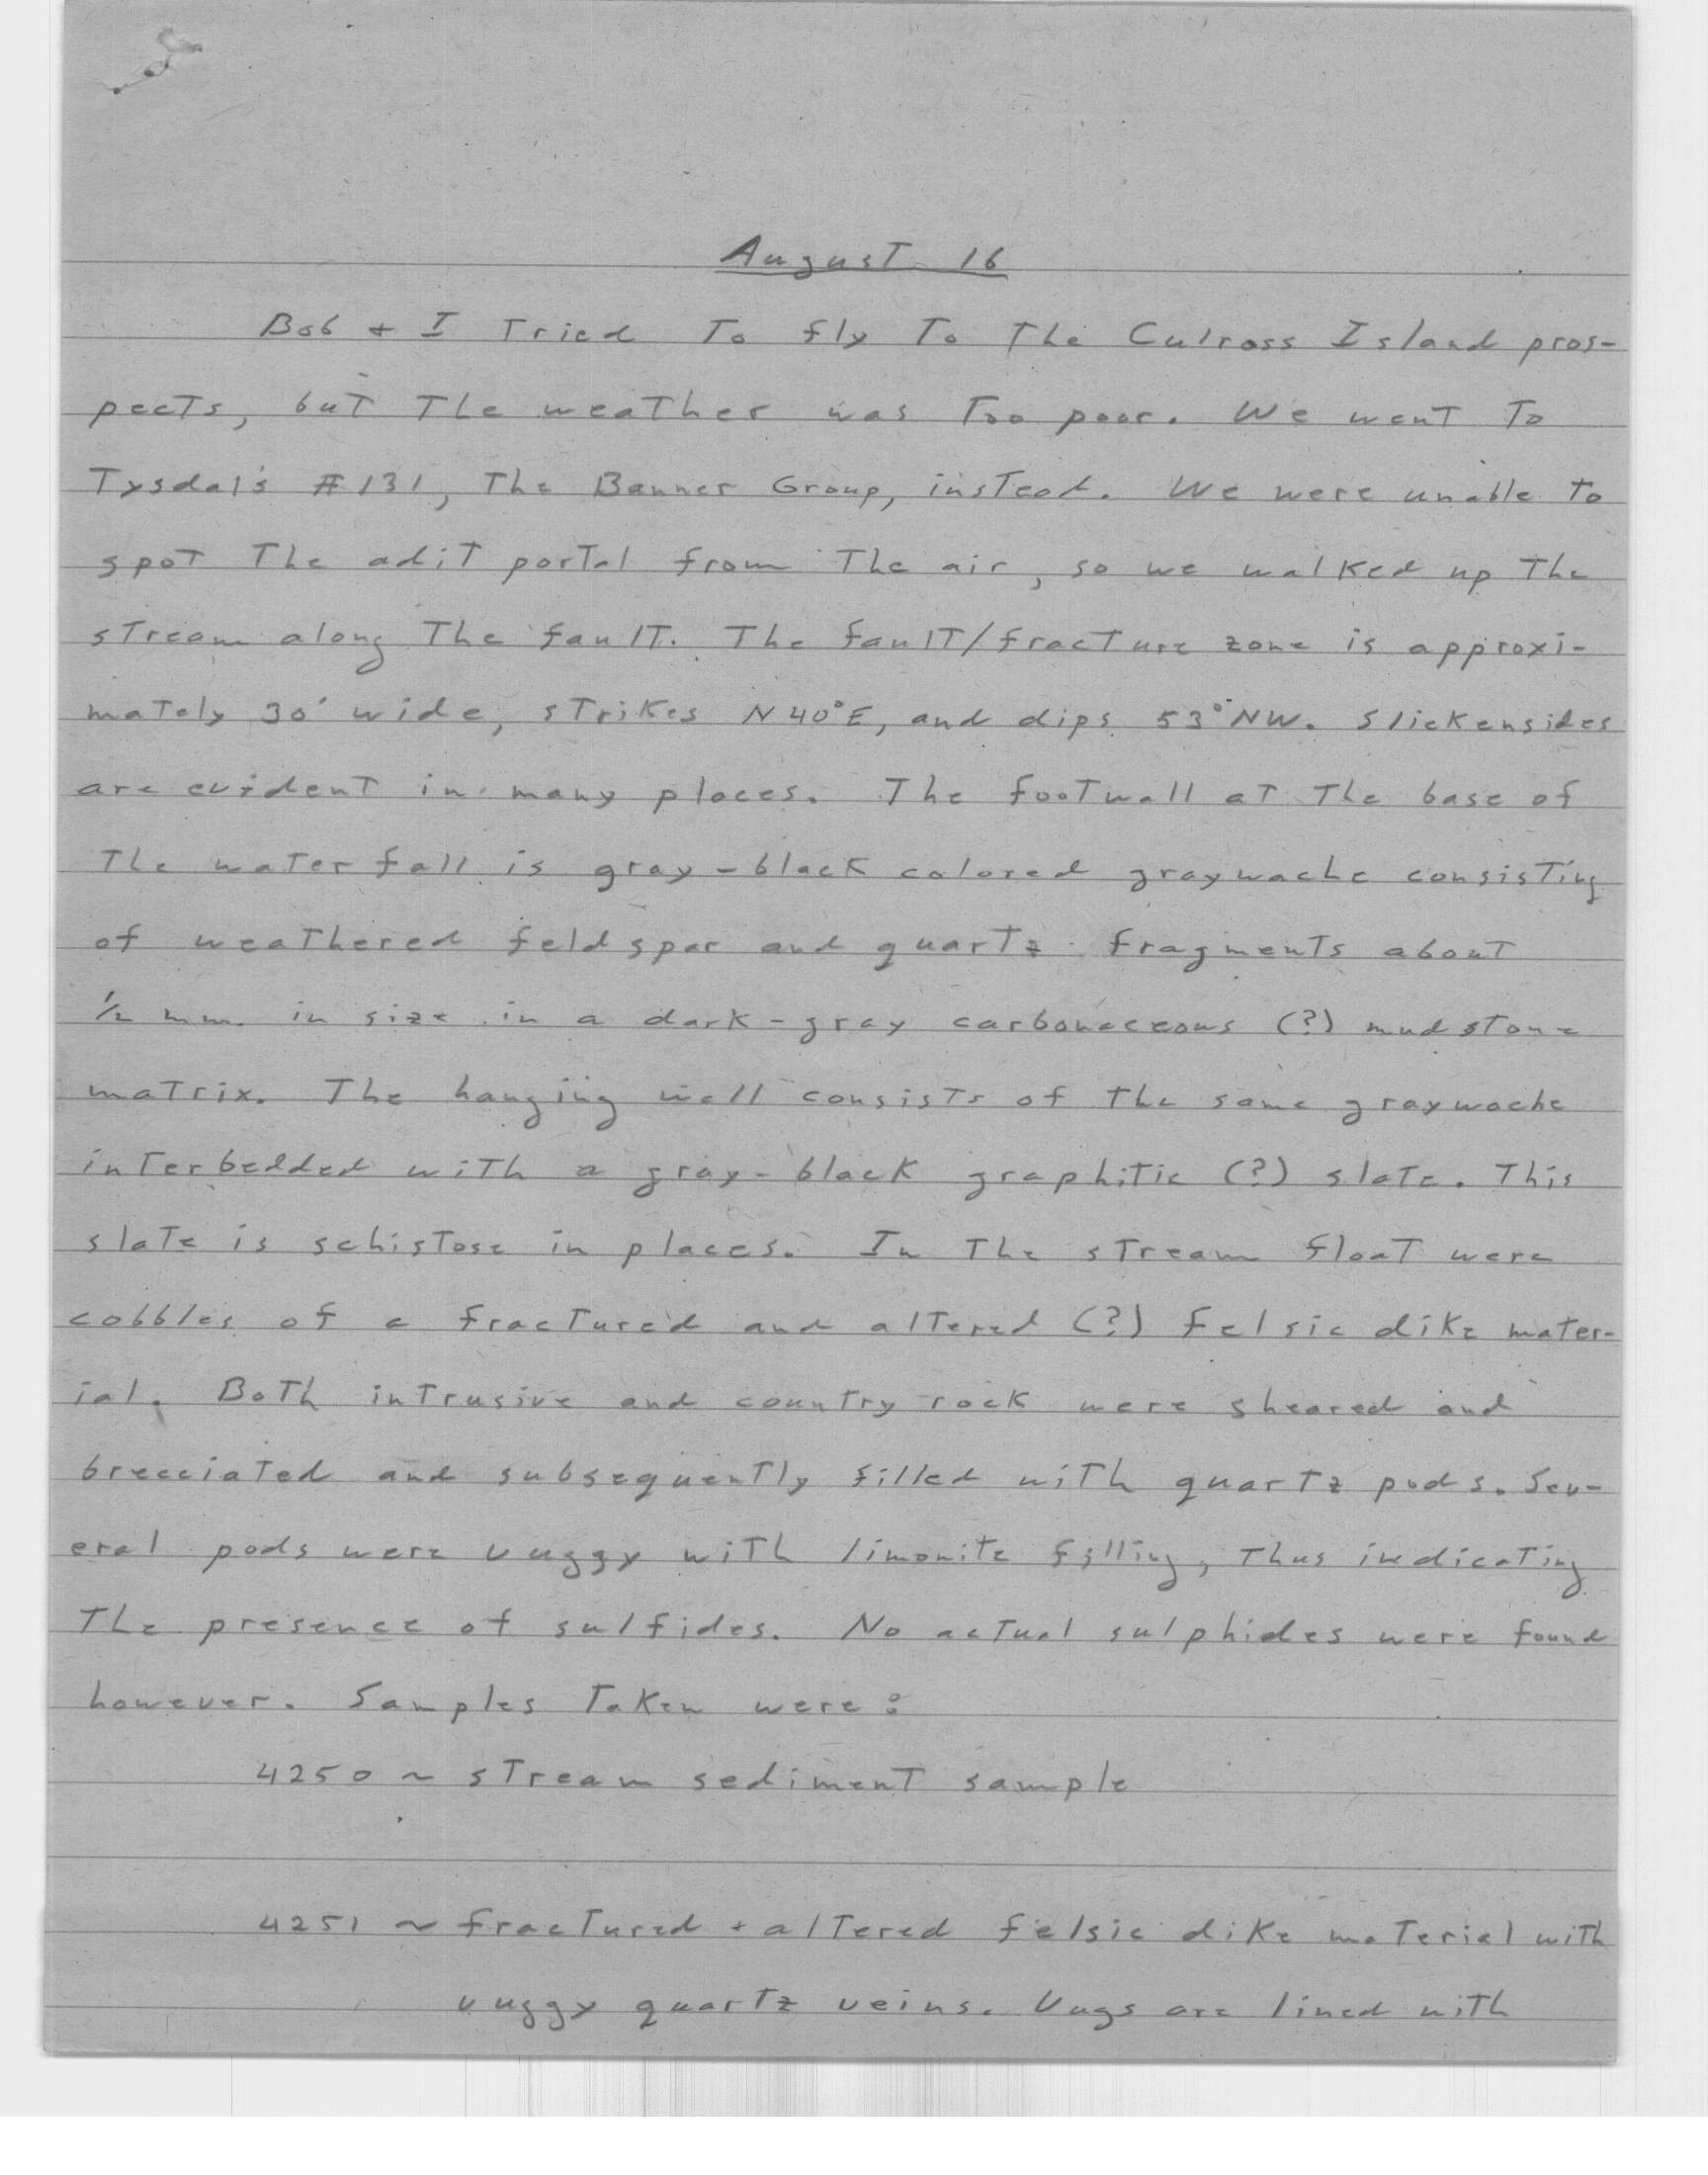 August 16
Bob + I tried to fly to the Culross Island pros-
pects, but the weather was too poor. We went to
Tysdal's #131, the Banner Group, instead. We were unable to
spot the adit portal from the air, so we walked up the
stream along the fault. The fault/fracture zone is approxi-
mately 30' wide, strikes N40°E, and dips 53°NW. Slickensides
are evident in many places. The footwall at the base of
the waterfall is gray-black colored graywacke consisting
of weathered feldspar and quartz fragments about
1/2 mm. in size in a dark-gray carbonaceous (?) mudstone
matrix. The hanging wall consists of the same graywacke
interbedded with a gray-black graphitic (?) slate. This
slate is schistose in places. In the stream float were
cobbles of a fractured and altered (?) felsic dike mater-
ial. Both intrusive and country rock were sheared and
brecciated and subsequently filled with quartz pods. Sev-
eral pods were vuggy with limonite filling, thus indicating
the presence of sulfides. No actual sulphides were found
however. Samples taken were:
4250 ~ stream sediment sample
4251 ~ fractured + altered felsic dike material with
vuggy quartz veins. Vugs are lined with